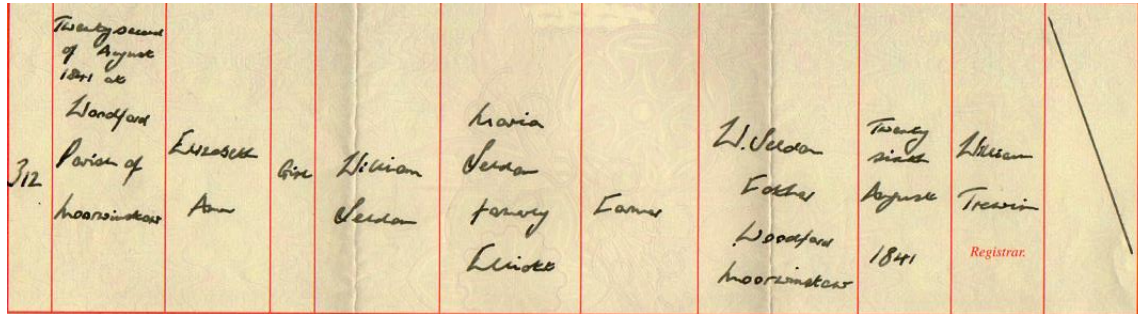 312
Twenty second
of August
1841 at
Woodford
Parish of
Moorwinstow
Elizabeth
Ann
Girl
William
Seldon
Maria
Seldon
formerly
Elliott
Farmer
W. Seldon
Father
Woodford
Moorwinstow
Twenty
sixth
August
1841
William
Trewin
Registrar.